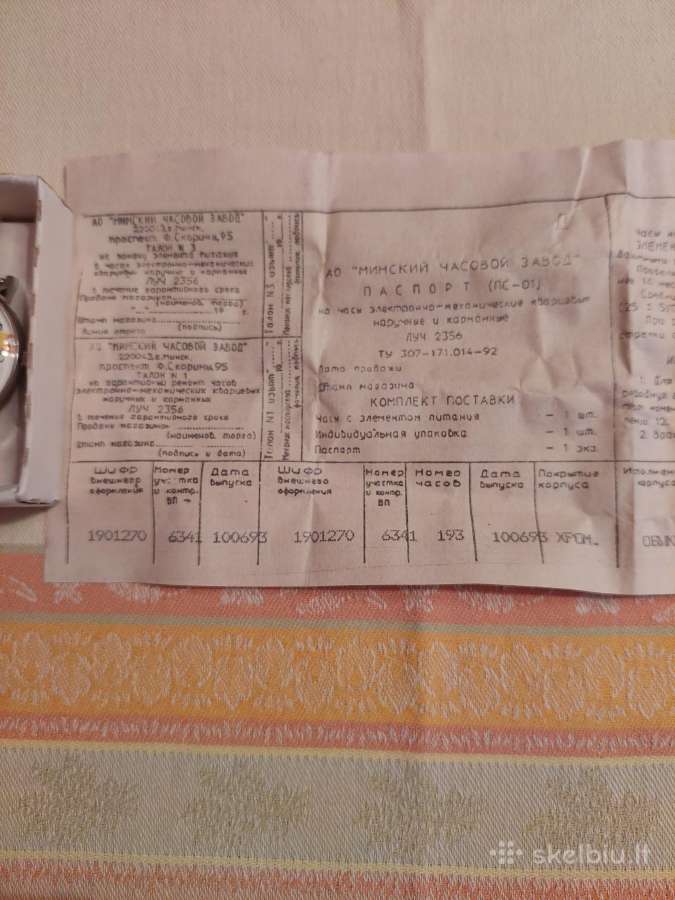 АО "МИНСКИЙ ЧАСОВОЙ ЗАВОД"
220043, г. Минск,
проспект Ф. Скорины, 95
ТАЛОН N 3
на замену элемента питания
в часах электронно-механических
кварцевых наручных и карманных
ЛУЧ 2356
в течение гарантийного срока
Продано магазином
(наименов. торга)
Штамп магазина
(подпись)
Талон N3 изъят
АО "МИНСКИЙ ЧАСОВОЙ ЗАВОД"
220043, г. Минск,
проспект Ф. Скорины, 95
ТАЛОН N 1
на гарантийный ремонт часов
электронно-механических кварцевых
наручных и карманных
ЛУЧ 2356
в течение гарантийного срока
Продано магазином
(наименов. торга)
Штамп магазина
(подпись и дата)
Талон N1 изъят
АО "МИНСКИЙ ЧАСОВОЙ ЗАВОД"
ПАСПОРТ (ПС-01)
на часы электронно-механические кварцевые
наручные и карманные
ЛУЧ 2356
ТУ 307-171.014-92
Дата продажи
Штамп магазина
КОМПЛЕКТ ПОСТАВКИ
Часы с элементом питания - 1 шт.
Индивидуальная упаковка - 1 шт.
Паспорт - 1 экз.
Шифр внешнего оформления Номер участка и контр. ВП Дата выпуска Шифр внешнего оформления Номер участка и контр. ВП Номер часов Дата выпуска Покрытие корпуса
1901270 6341 100693 1901270 6341 193 100693 ХРОМ.
skelbiu.lt